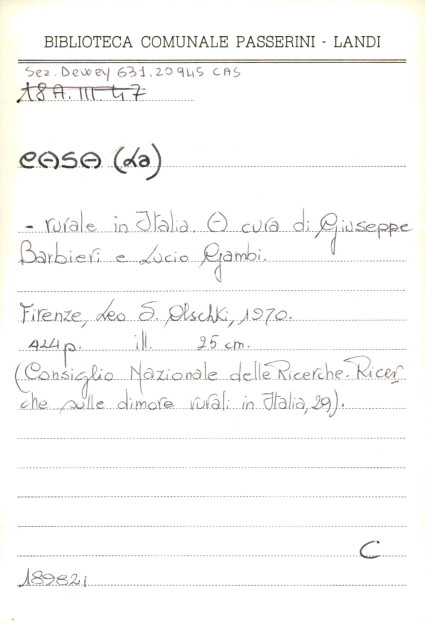 BIBLIOTECA COMUNALE PASSERINI - LANDI
Sez. Dewey 631.20945 CAS
18 A. III. 47
CASA (La)
- rurale in Italia. A cura di Giuseppe
Barbieri e Lucio Gambi.
Firenze, Leo S. Olschki, 1970.
424 p. ill. 25 cm.
(Consiglio Nazionale delle Ricerche. Ricer
che sulle dimore rurali in Italia, 29).
C
189821